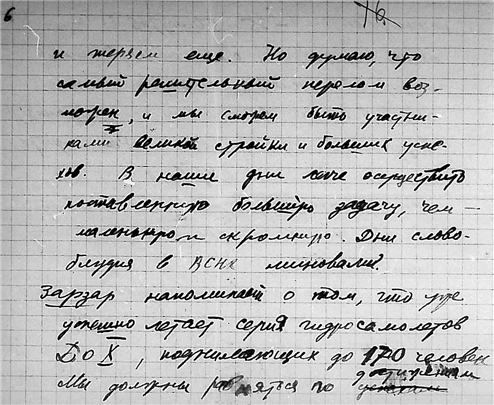 6 76.
и теряем еще. Но думаю, что
самый решительный перелом воз-
можен, и мы сможем быть участни-
ками великой стройки и больших успе-
хов. В наше дни легче осуществить
поставленную большую задачу, чем —
маленькую и скромную. Дни слово-
блудия в ВСНХ миновали.
Зарзар напоминает о том, что уже
успешно летает серия гидросамолетов
Do X, поднимающих до 170 человек
Мы должны равняться по достижениям